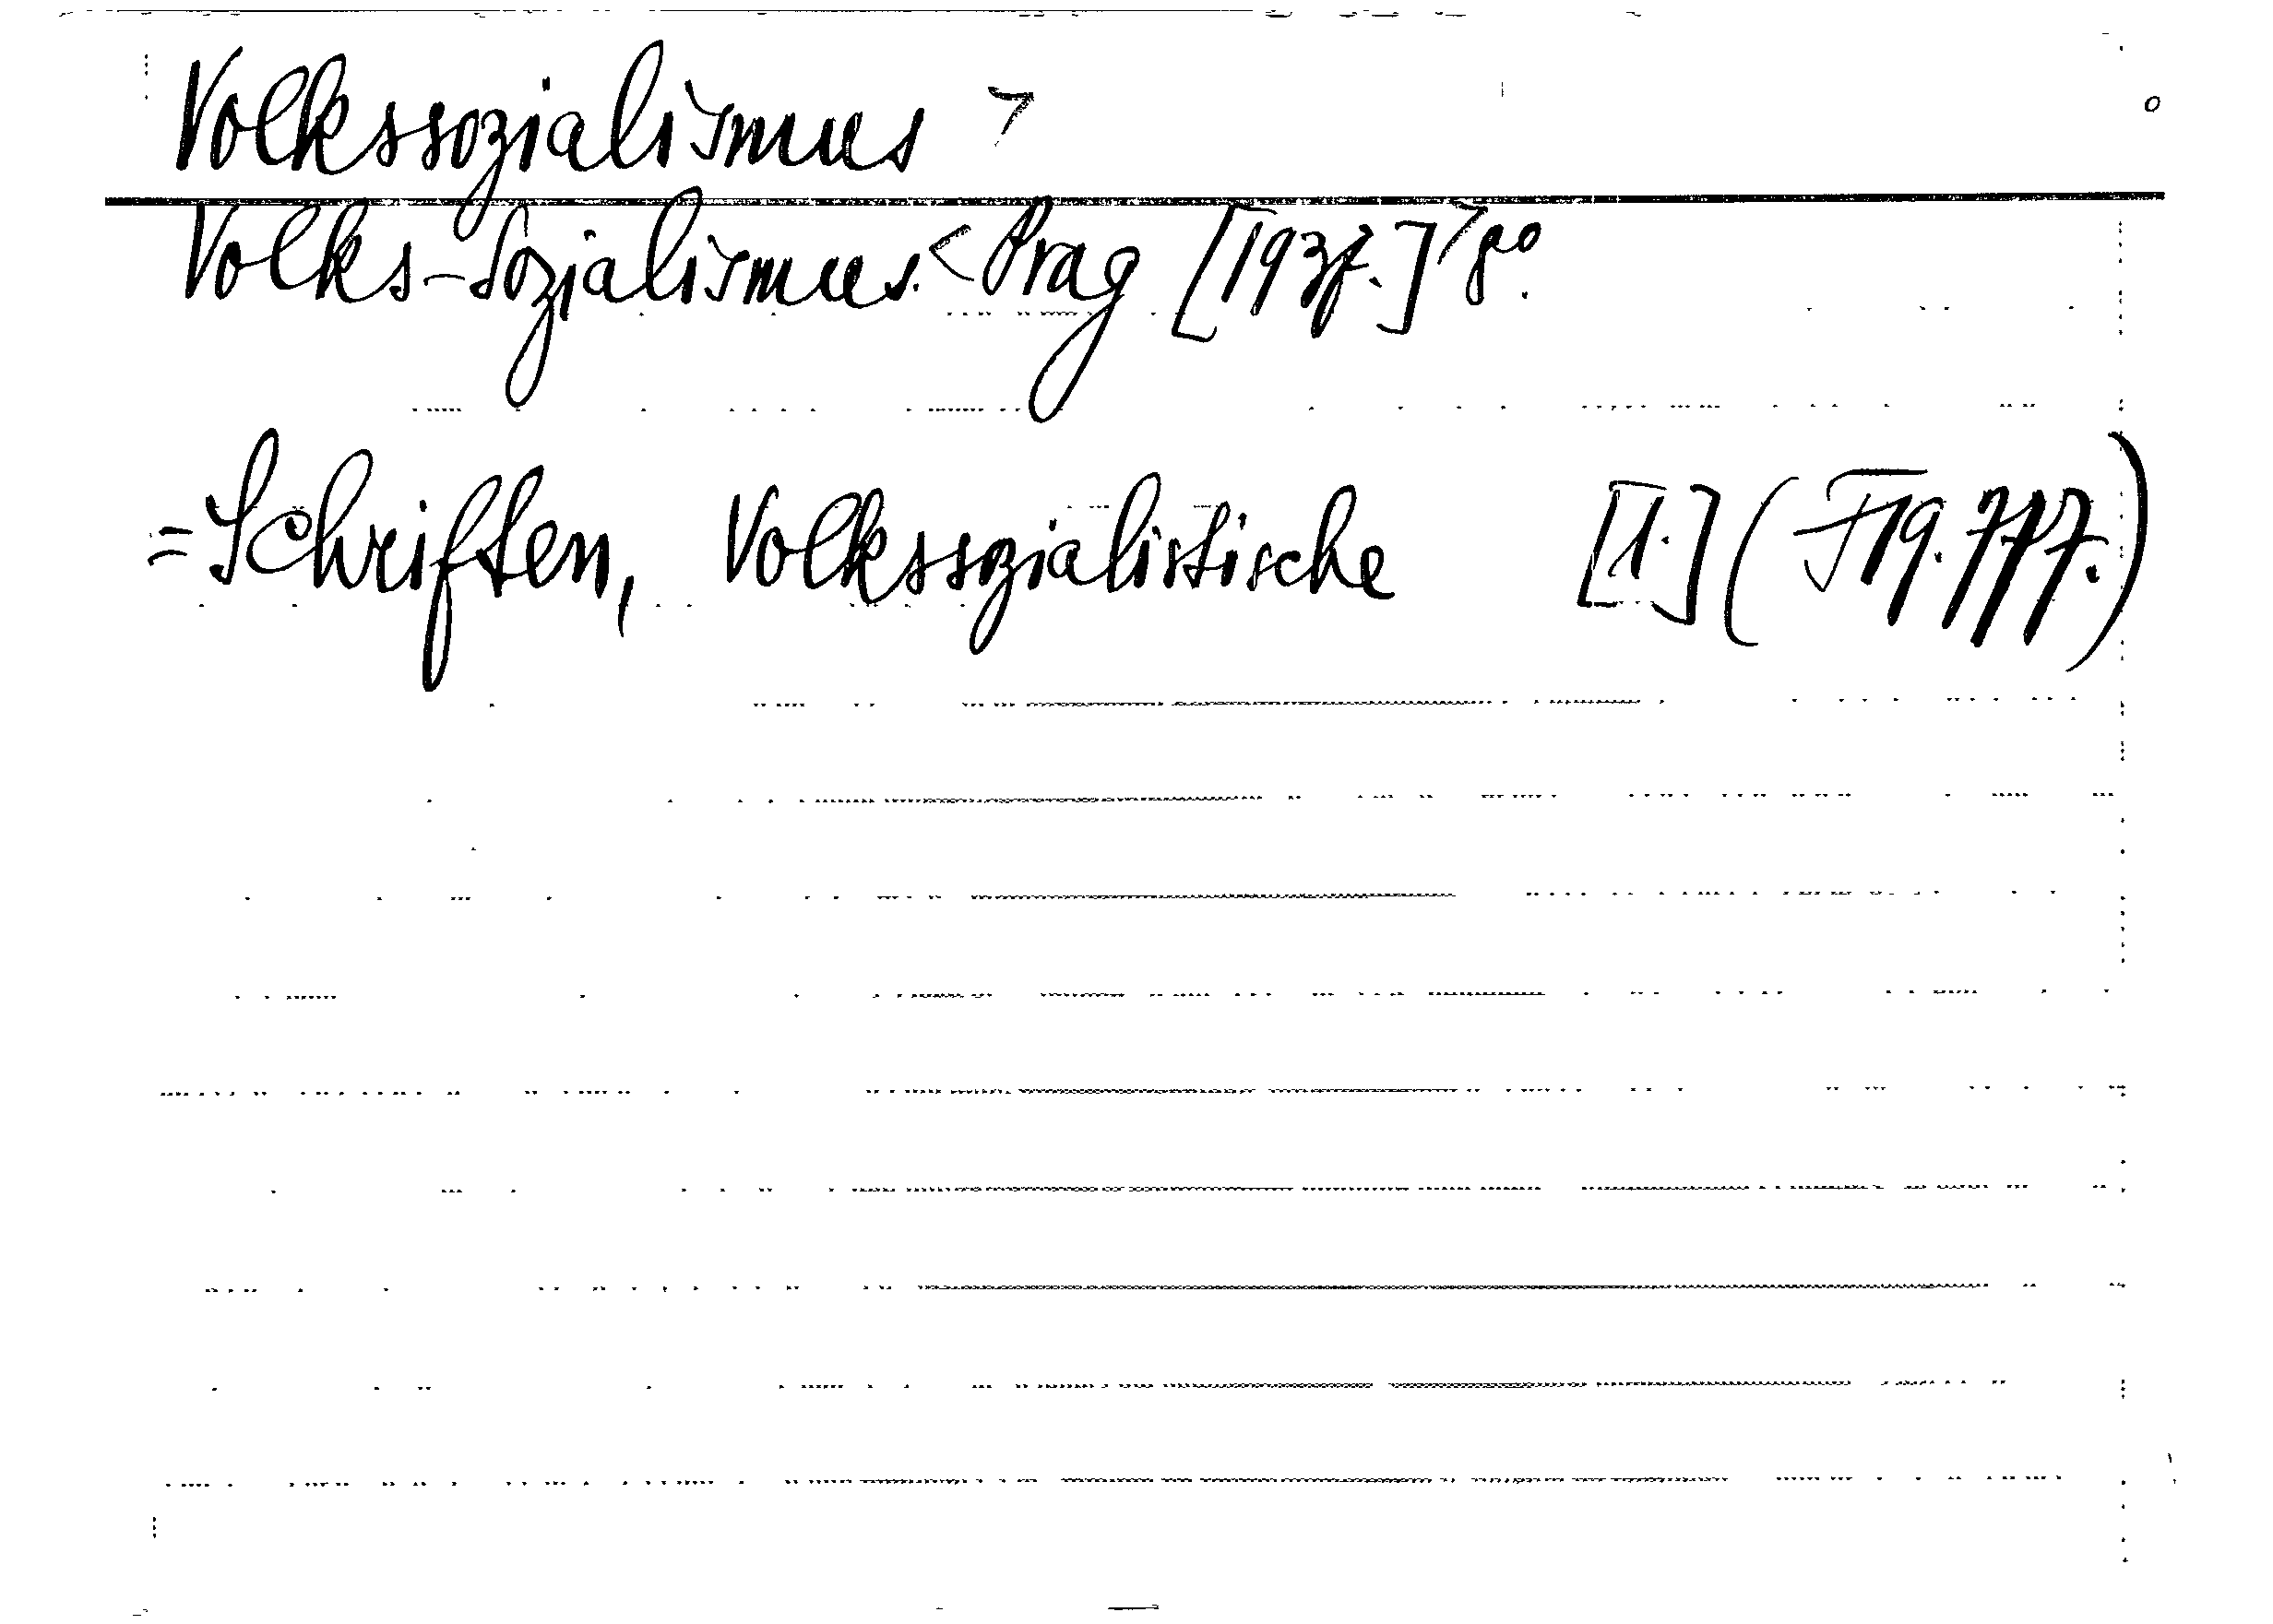 Volkssozialismus >
Volks-Sozialismus. < Prag [1937.] > 8°.
= Schriften, Volkssozialistische [1.] (F 19. 777.)